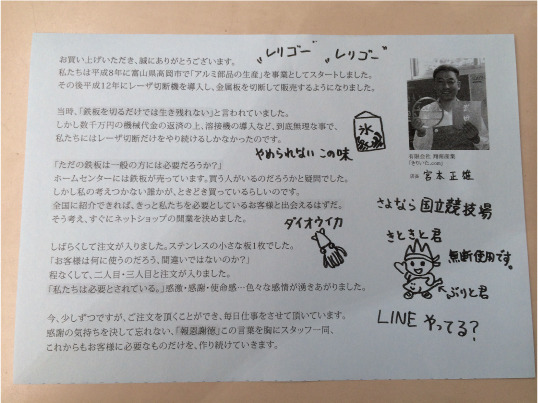 レリゴー レリゴー
お買い上げいただき、誠にありがとうございます。
私たちは平成8年に富山県高岡市で「アルミ部品の生産」を事業としてスタートしました。
その後平成12年にレーザ切断機を導入し、金属板を切断して販売するようになりました。
当時、「鉄板を切るだけでは生き残れない」と言われていました。
しかし数千万円の機械代金の返済の上、溶接機の導入など、到底無理な事で、
私たちにはレーザ切断だけをやり続けるしかなかったのです。
氷
やめられない この味
「ただの鉄板は一般の方には必要だろうか?」
ホームセンターには鉄板が売っています。買う人がいるのだろうかと疑問でした。
しかし私の考えつかない誰かが、ときどき買っているらしいのです。
全国に紹介できれば、きっと私たちを必要としているお客様と出会えるはずだ。
そう考え、すぐにネットショップの開業を決めました。
ダイオウイカ
しばらくして注文が入りました。ステンレスの小さな板1枚でした。
「お客様は何に使うのだろう、間違いではないのか?」
程なくして、二人目・三人目と注文が入りました。
「私たちは必要とされている。」感激・感謝・使命感…色々な感情が湧きあがりました。
今、少しずつですが、ご注文を頂くことができ、毎日仕事をさせて頂いています。
感謝の気持ちを決して忘れない、「報恩謝徳」この言葉を胸にスタッフ一同、
これからもお客様に必要なものだけを、作り続けていきます。
有限会社 翔飛産業
「きりいた.com」
店長 宮本 正雄
さよなら国立競技場
きときと君
無断使用です。
ぶりと君
LINE やってる?